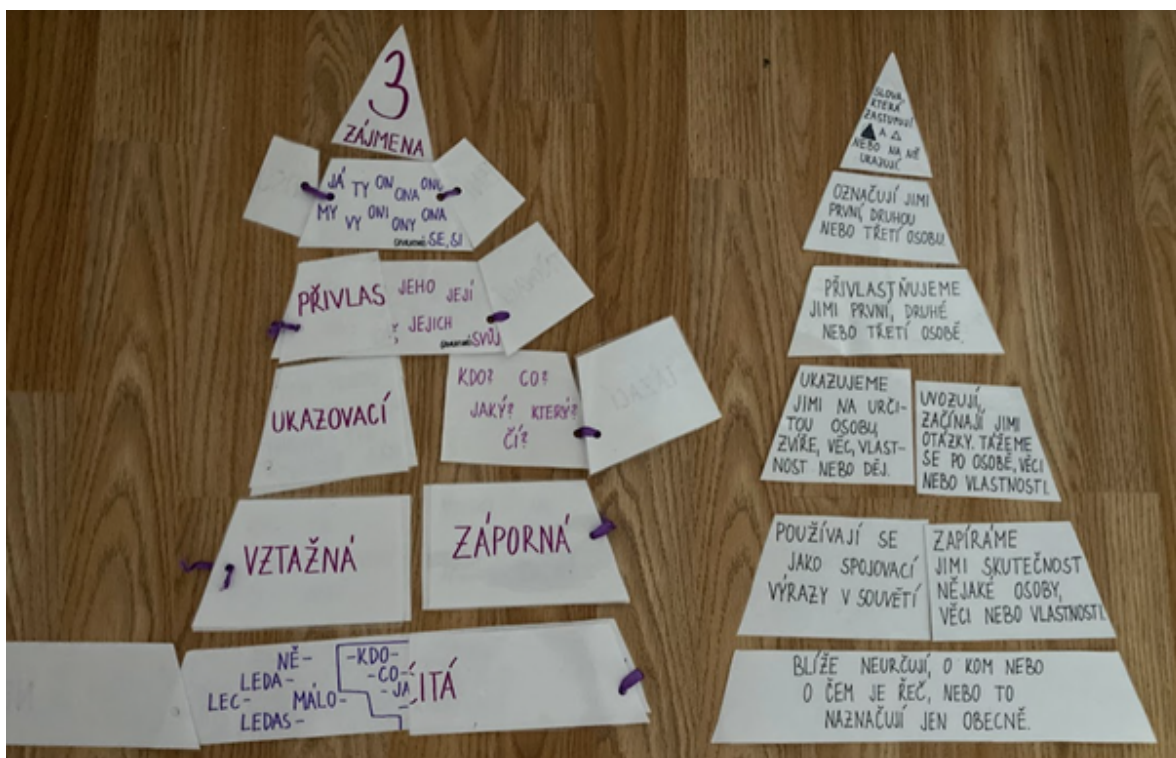 3
ZÁJMENA
JÁ TY ON ONA ONO
MY VY ONI ONY ONA
SE, SI
PŘIVLAS
JEHO JEJÍ
JEJICH
SVŮJ
UKAZOVACÍ
KDO? CO?
JAKÝ? KTERÝ?
ČÍ?
VZTAŽNÁ
ZÁPORNÁ
NĚ-
LEDA-
LEC- MÁLO-
LEDAS-
-KDO-
-CO-
-JA
ČITÁ
SLOVA,
KTERÁ
ZASTUPUJÍ
A
NEBO NA NĚ
UKAZUJÍ.
OZNAČUJÍ JIMI
PRVNÍ, DRUHOU
NEBO TŘETÍ OSOBU.
PŘIVLASTŇUJEME
JIMI PRVNÍ, DRUHÉ
NEBO TŘETÍ OSOBĚ.
UKAZUJEME
JIMI NA URČI-
TOU OSOBU,
ZVÍŘE, VĚC, VLAST-
NOST NEBO DĚJ.
UVOZUJÍ,
ZAČÍNAJÍ JIMI
OTÁZKY. TÁŽEME
SE PO OSOBĚ, VĚCI
NEBO VLASTNOSTI.
POUŽÍVAJÍ SE
JAKO SPOJOVACÍ
VÝRAZY V SOUVĚTÍ
ZAPÍRÁME
JIMI SKUTEČNOST
NĚJAKÉ OSOBY,
VĚCI NEBO VLASTNOSTI.
BLÍŽE NEURČUJÍ, O KOM NEBO
O ČEM JE ŘEČ, NEBO TO
NAZNAČUJÍ JEN OBECNĚ.